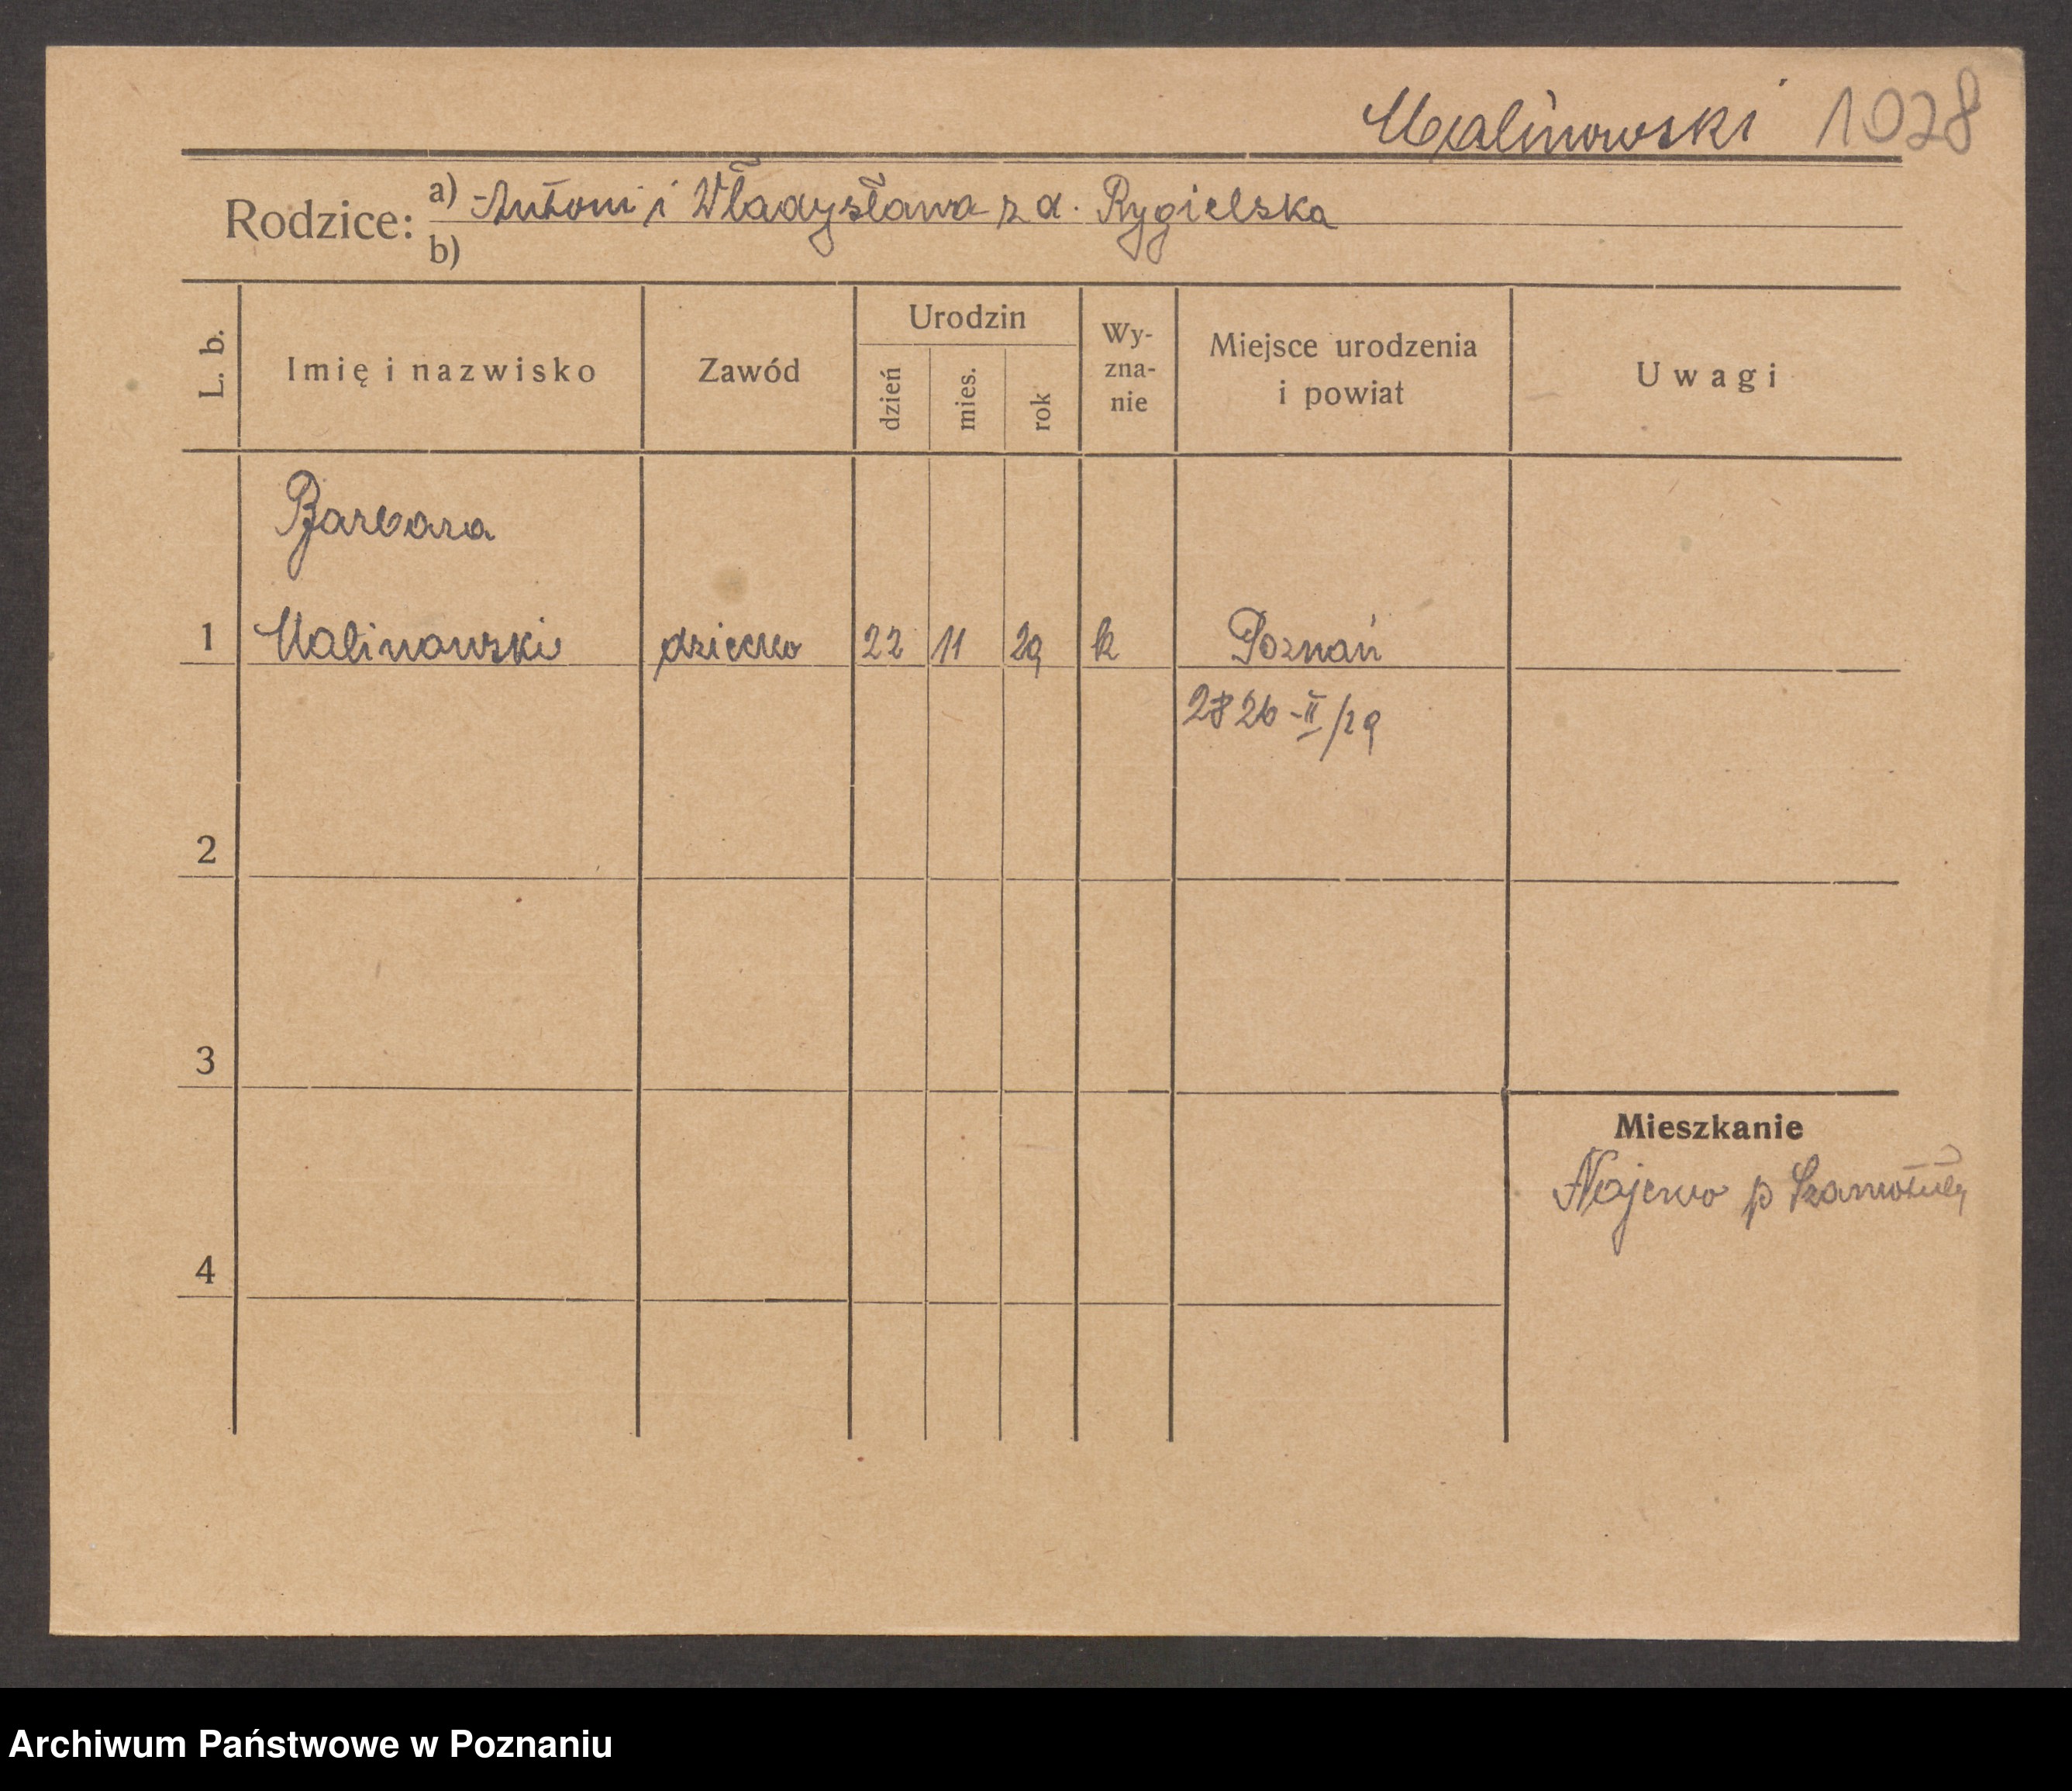 Malinowski 1028
Rodzice: a) Antoni i Władysława z d. Rygielska
b)
L. b. Imię i nazwisko Zawód Urodzin dzień mies. rok Wy-zna-nie Miejsce urodzenia i powiat Uwagi
Barbara
1 Malinowski dziecko 22 11 29 k Poznań
2826-II/29
2
3
Mieszkanie
Najewo p Szamotuły
4
Archiwum Państwowe w Poznaniu